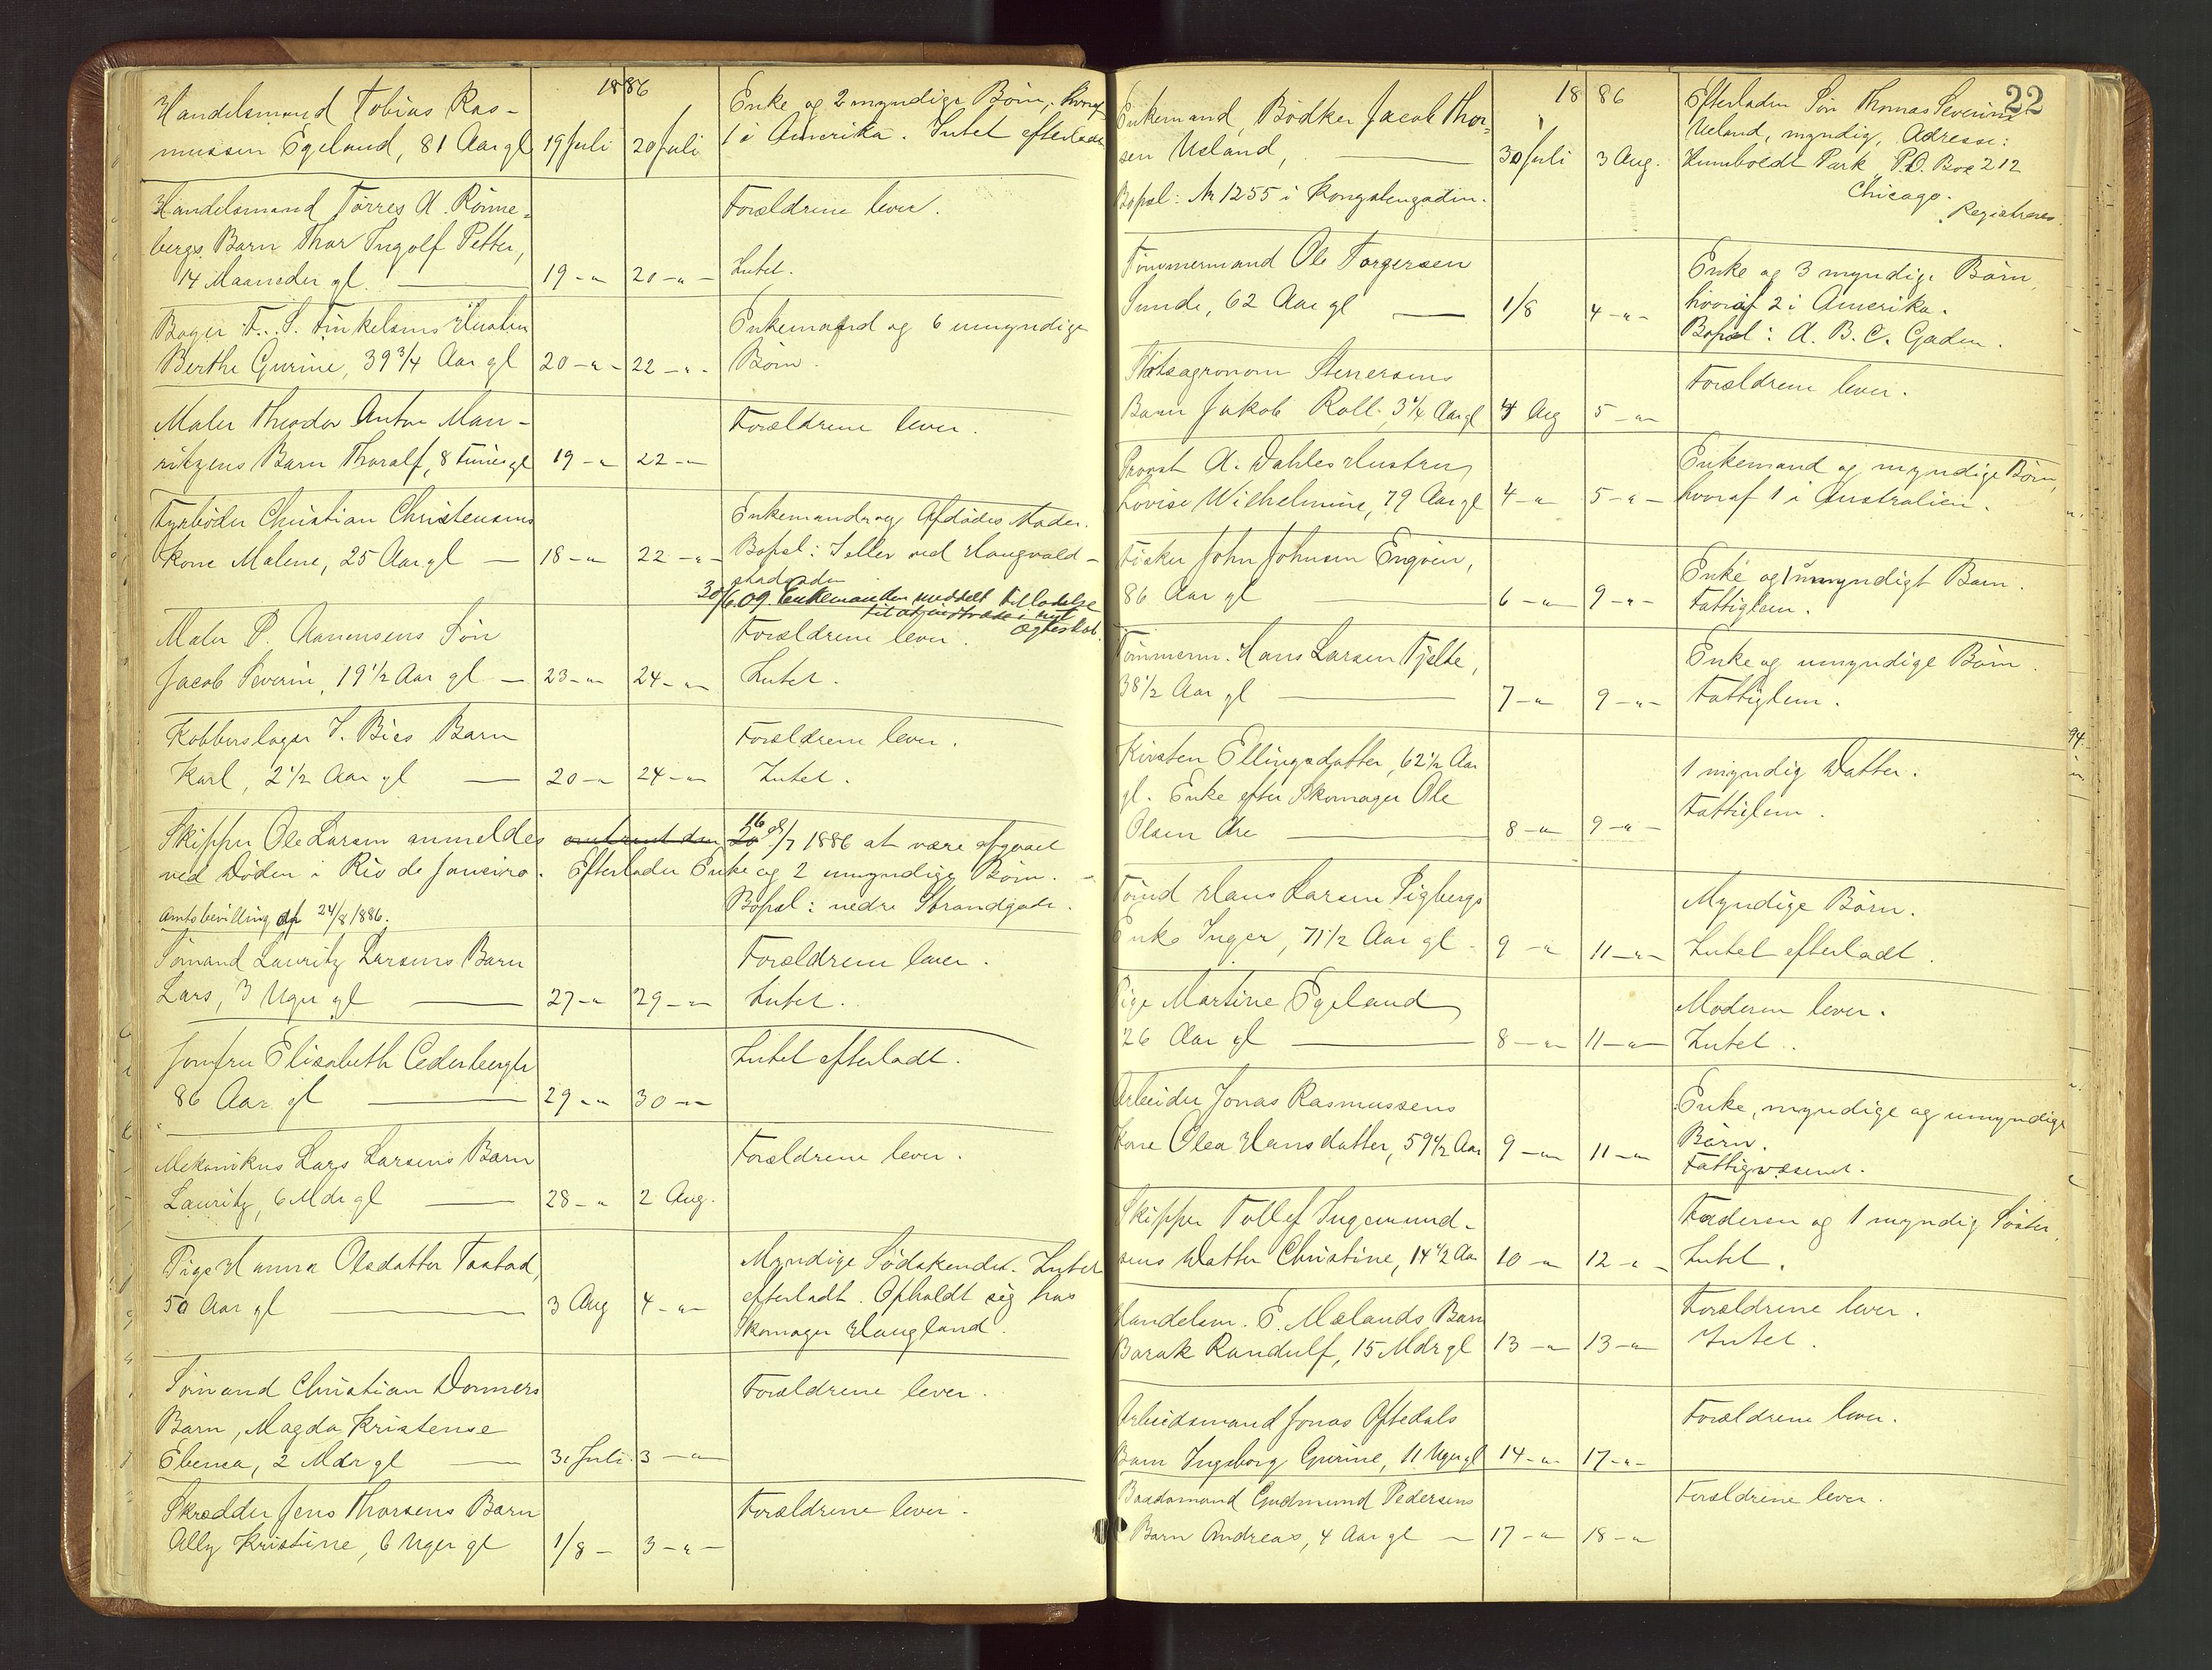 1886
Handelsmand Tobias Ras-
mussen Egeland, 81 Aar gl 19 Juli 20 Juli
Enke og 2 myndige Børn, hvoraf
1 i Amerika. Intet efterladt
Handelsmand Tørres A. Rønne-
bergs Barn Thor Ingolf Petter,
14 Maaneder gl. 19 -"- 20 -"-
Forældrene lever.
Intet.
Bager F. S. Finkelsens Hustru
Berthe Gurine, 39 3/4 Aar gl 20 -"- 22 -"-
Enkemand og 6 umyndige
Børn.
Maler Theodor Anton Mau-
ritzens Barn Thoralf, 8 Timer gl 19 -"- 22 -"-
Forældrene lever.
Fyrbøder Christian Christensens
Kone Malene, 25 Aar gl 18 -"- 22 -"-
Enkemand og Afdødes Moder.
Bopæl: I eller ved Haugvald-
stadgaden
30/6 09 Enkemanden meddelt Tilladelse
til at indtræde i nyt
Ægteskab.
Maler P. Aanensens Søn
Jacob Severin, 19 1/2 Aar gl 23 -"- 24 -"-
Forældrene lever.
Intet.
Kobberslager I. Bies Barn
Karl, 2 1/2 Aar gl 20 -"- 24 -"-
Forældrene lever.
Intet.
Skipper Ole Larsen anmeldes omtrent den 20 16 d/7 1886 at være afgaaet
ved Døden i Rio de Janeiro. Efterlader Enke og 2 umyndige Børn.
Bopæl: nedre Strandgade.
Amtsbevilling af 24/8/1886.
Sømand Lauritz Larsens Barn
Lars, 3 Uger gl 27 -"- 29 -"-
Forældrene lever.
Intet.
Jomfru Elisabeth Cederbergh
86 Aar gl 29 -"- 30 -"-
Intet efterladt.
Mekanikus Lars Larsens Barn
Lauritz, 6 Mdr gl 28 -"- 2 Aug.
Forældrene lever.
Pige Hanna Olsdatter Tastad,
50 Aar gl 3 Aug 4 -"-
Myndige Sødskende. Intet
efterladt. Opholdt sig hos
Skomager Haugland.
Sømand Christian Donners
Barn, Magda Kristense
Ebena, 2 Mdr gl 31 Juli. 3 -"-
Forældrene lever.
Skrædder Jens Thorsens Barn
Ally Kristine, 6 Uger gl 1/8 - 3 -"-
Forældrene lever.
22
1886
Enkemand, Bødker Jacob Thor-
sen Ueland, 30 Juli 3 Aug.
Bopæl: No 1255 i Kongsteengaden.
Efterlader Søn Thomas Severin
Ueland, myndig, Adresse:
Humboldt Park P.O. Box 212
Chicago.
Registreres.
Tømmermand Ole Torgersen
Sunde, 62 Aar gl 1/8 4 -"-
Enke og 3 myndige Børn,
hvoraf 2 i Amerika.
Bopæl: A. B. C. Gaden.
Statsagronom Stenersens
Barn Jakob Roll 3 1/6 Aar gl 4 Aug 5 -"-
Forældrene lever.
Provst A. Dahles Hustru
Lovise Wilhelmine, 79 Aar gl 4 -"- 5 -"-
Enkemand og myndige Børn,
hvoraf 1 i Australien.
Fisker John Johnsen Engøen,
86 Aar gl 6 -"- 9 -"-
Enke og 1 umyndigt Barn.
Fattiglem.
Tømmerm. Hans Larsen Fjelde,
38 1/2 Aar gl 7 -"- 9 -"-
Enke og umyndige Børn.
Fattiglem.
Kirsten Ellingsdatter, 62 1/2 Aar
gl. Enke efter Skomager Ole
Olsen Are 8 -"- 9 -"-
1 myndig Datter.
Fattiglem.
Tømd Hans Larsen Sigbergs
Enke Inger, 71 1/2 Aar gl. 9 -"- 11 -"-
Myndige Børn.
Intet efterladt.
Pige Martine Egeland
26 Aar gl 8 -"- 11 -"-
Moderen lever.
Intet.
Arbeider Jonas Rasmussens
Kone Olea Hansdatter, 59 1/2 Aar 9 -"- 11 -"-
Enke, myndige og umyndige
Børn.
Fattigvæsenet.
Skipper Tollef Ingemund-
sens Datter Christine, 14 1/2 Aar 10 -"- 12 -"-
Faderen og 1 myndig Søster.
Intet.
Handelsm. E. Mælands Barn
Barak Randulf, 15 Mdr gl 13 -"- 13 -"-
Forældrene lever.
Intet.
Arbeidsmand Jonas Oftedals
Barn Ingeborg Gurine, 11 Uger gl 14 -"- 17 -"-
Forældrene lever.
Baadsmand Gudmund Pedersens
Barn Andreas, 4 Aar gl 17 -"- 18 -"-
Forældrene lever.